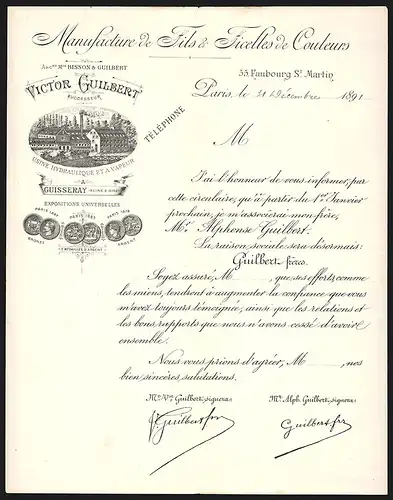 Manufacture de Fils & Ficelles de Couleurs
Anc.ne M.on BISSON & GUILBERT
VICTOR GUILBERT
SUCCESSEUR
USINE HYDRAULIQUE ET A VAPEUR
A
GUISSERAY (SEINE & OISE)
EXPOSITIONS UNIVERSELLES
PARIS 1867
PARIS 1867
PARIS 1878
BRONZE
ARGENT
TÉLÉPHONE
33, Faubourg St Martin,
Paris, le 21 Décembre 1891
M
J'ai l'honneur de vous informer, par
cette circulaire, qu'à partir du 1er Janvier
prochain, je m'associerai mon frère,
Mr. Alphonse Guilbert.
La raison sociale sera désormais:
Guilbert frères.
Soyez assuré, M , que ses efforts, comme
les miens, tendront à augmenter la confiance que vous
m'avez toujours témoignée, ainsi que les relations et
les bons rapports que nous n'avons cessé d'avoir
ensemble.
Nous vous prions d'agréer, M , nos
bien sincères salutations.
Mr. Vor Guilbert, signera:
Mr. Alph. Guilbert, signera:
V. Guilbert frs
Guilbert frs